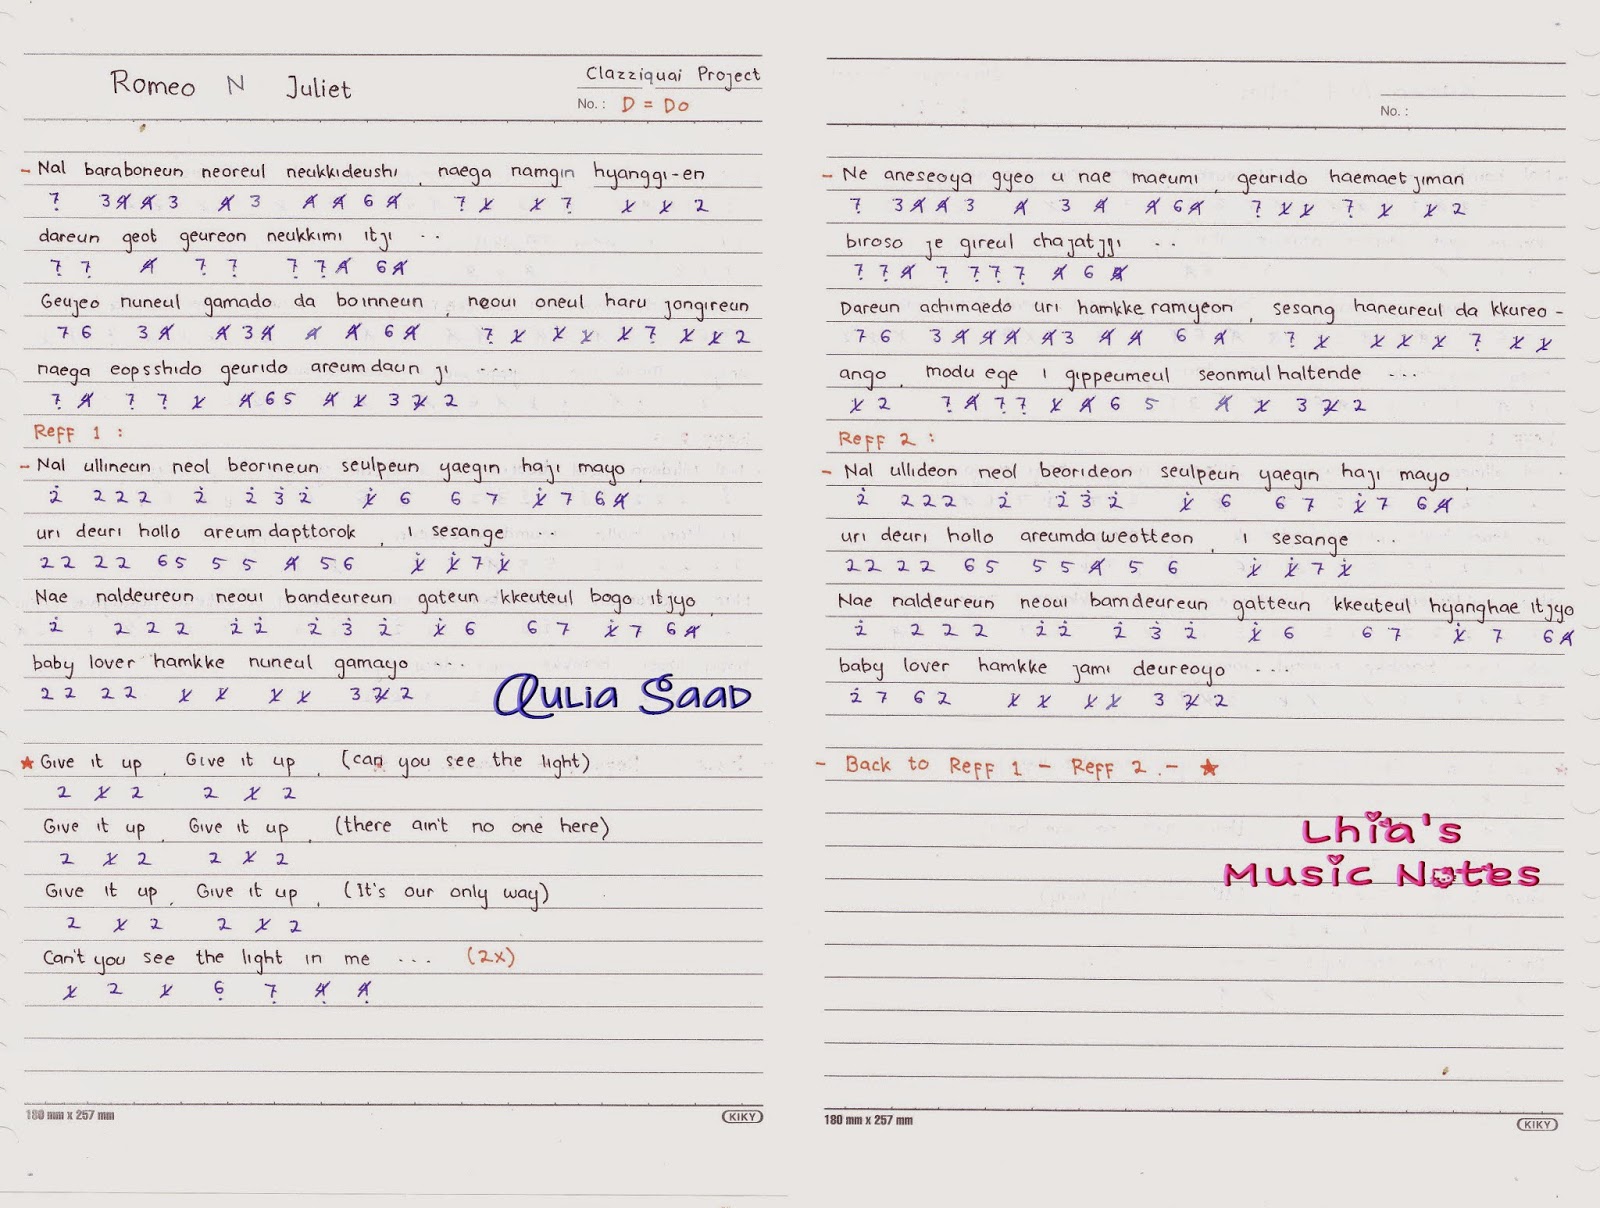 Romeo N Juliet
Clazziquai Project
No.: D = Do
- Nal baraboneun neoreul neukkideushi, naega namgin hyanggi-en
7̣ 3 4̸ 4̸ 3 4̸ 3 4̸ 4̸ 6 4̸ 7̣ 1̸ 1̸ 7̣ 1̸ 1̸ 2
dareun geot geureon neukkimi itji ..
7̣ 7̣ 4̸ 7̣ 7̣ 7̣ 7̣ 4̸ 6 4̸
Geujeo nuneul gamado da boinneun, neoui oneul haru jongireun
7 6 3 4̸ 4̸ 3 4̸ 4̸ 4̸ 6 4̸ 7̣ 1̸ 1̸ 1̸ 1̸ 7̣ 1̸ 1̸ 2
naega eopsshido geurido areumdaun ji ....
7̣ 4̸ 7̣ 7̣ 1̸ 4̸ 6 5 4̸ 1̸ 3 2̸ 2
Reff 1 :
- Nal ullineun neol beorineun seulpeun yaegin haji mayo,
2̇ 2 2 2 2̇ 2̇ 3̇ 2̇ 1̸̇ 6 6 7 1̸̇ 7 6 4̸
uri deuri hollo areumdapttorok, i sesange ..
2 2 2 2 6 5 5 5 4̸ 5 6 1̸̇ 1̸̇ 7 1̸̇
Nae naldeureun neoui bandeureun gateun kkeuteul bogo itjyo,
2̇ 2 2 2 2̇ 2̇ 2̇ 3̇ 2̇ 1̸̇ 6 6 7 1̸̇ 7 6 4̸
baby lover hamkke nuneul gamayo ...
2 2 2 2 1̸ 1̸ 1̸ 1̸ 3 2̸ 2
Aulia Saad
★ Give it up, Give it up, (can you see the light)
2 1̸ 2 2 1̸ 2
Give it up, Give it up, (there ain't no one here)
2 1̸ 2 2 1̸ 2
Give it up, Give it up, (It's our only way)
2 1̸ 2 2 1̸ 2
Can't you see the light in me ... (2x)
1̸ 2 1̸ 6̣ 7̣ 4̸̣ 4̸̣
180 mm x 257 mm
KIKY
No. :
- Ne aneseoya gyeo u nae maeumi, geurido haemaetjiman
7̣ 3 4̸ 4̸ 3 4̸ 3 4̸ 4̸ 6 4̸ 7̣ 1̸ 1̸ 7̣ 1̸ 1̸ 2
biroso je gireul chajatjyi ..
7̣ 7̣ 4̸ 7̣ 7̣ 7̣ 7̣ 4̸ 6 4̸
Dareun achimaedo uri hamkke ramyeon, sesang haneureul da kkureo -
7 6 3 4̸ 4̸ 4̸ 4̸ 3 4̸ 4̸ 6 4̸ 7̣ 1̸ 1̸ 1̸ 1̸ 7̣ 1̸ 1̸
ango, modu ege i gippeumeul seonmul haltende ...
1̸ 2 7̣ 4̸ 7̣ 7̣ 1̸ 4̸ 6 5 4̸ 1̸ 3 2̸ 2
Reff 2 :
- Nal ullideon neol beorideon seulpeun yaegin haji mayo,
2̇ 2 2 2 2̇ 2̇ 3̇ 2̇ 1̸̇ 6 6 7 1̸̇ 7 6 4̸
uri deuri hollo areumdaweotteon, i sesange ..
2 2 2 2 6 5 5 5 4̸ 5 6 1̸̇ 1̸̇ 7 1̸̇
Nae naldeureun neoui bamdeureun gatteun kkeuteul hyanghae itjyo
2̇ 2 2 2 2̇ 2̇ 2̇ 3̇ 2̇ 1̸̇ 6 6 7 1̸̇ 7 6 4̸
baby lover hamkke jami deureoyo ....
2̇ 7 6 2 1̸ 1̸ 1̸ 1̸ 3 2̸ 2
- Back to Reff 1 - Reff 2 . - ★
Lhia's
Music Notes
180 mm x 257 mm
KIKY